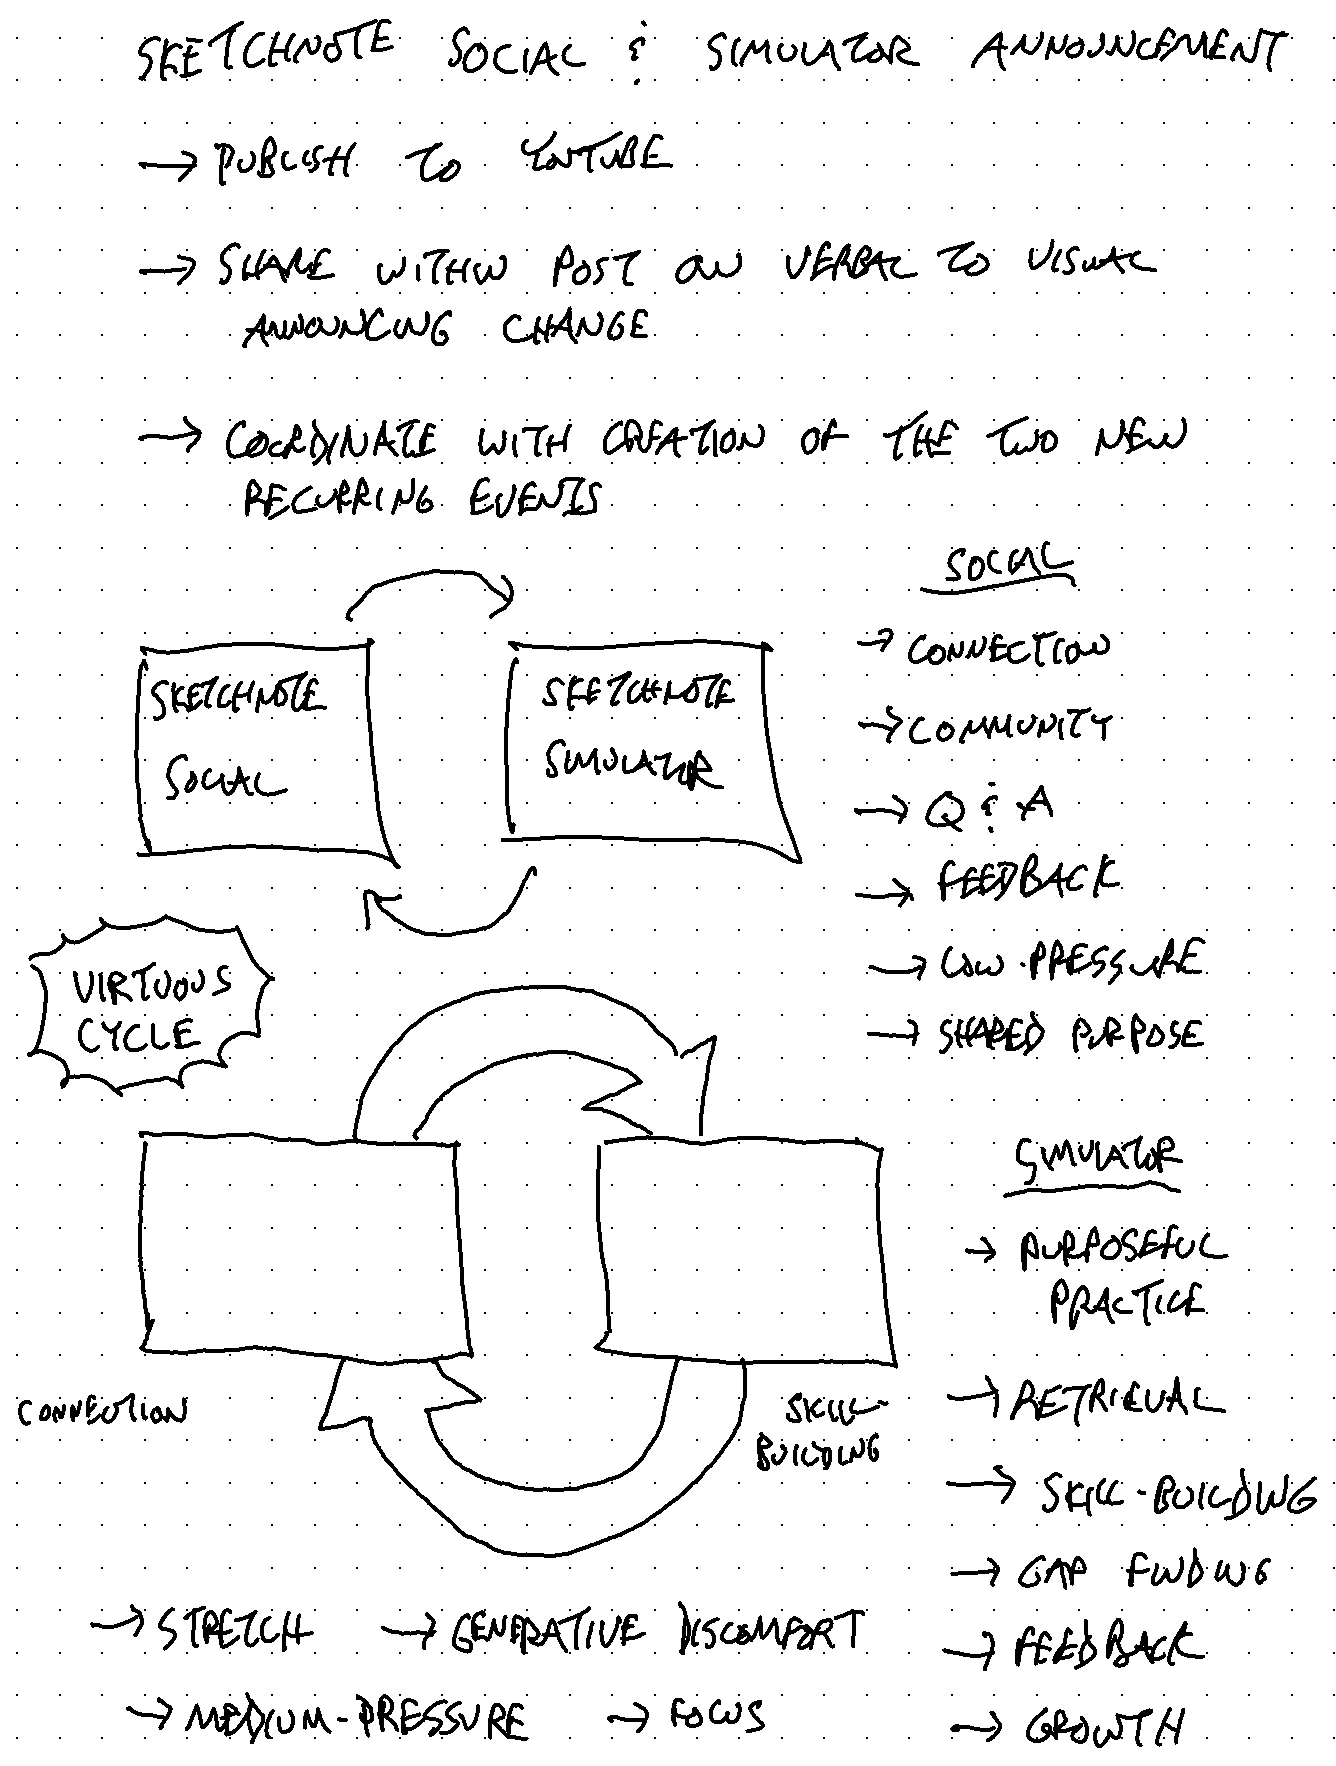 SKETCHNOTE SOCIAL & SIMULATOR ANNOUNCEMENT
→ PUBLISH TO YOUTUBE
→ SHARE WITHIN POST ON VERBAL TO VISUAL
ANNOUNCING CHANGE
→ COORDINATE WITH CREATION OF THE TWO NEW
RECURRING EVENTS
SKETCHNOTE
SOCIAL
SKETCHNOTE
SIMULATOR
SOCIAL
→ CONNECTION
→ COMMUNITY
→ Q & A
→ FEEDBACK
→ LOW-PRESSURE
→ SHARED PURPOSE
VIRTUOUS
CYCLE
CONNECTION
SKILL-
BUILDING
SIMULATOR
→ PURPOSEFUL
PRACTICE
→ RETRIEVAL
→ SKILL-BUILDING
→ GAP FINDING
→ FEEDBACK
→ GROWTH
→ STRETCH → GENERATIVE DISCOMFORT
→ MEDIUM-PRESSURE → FOCUS